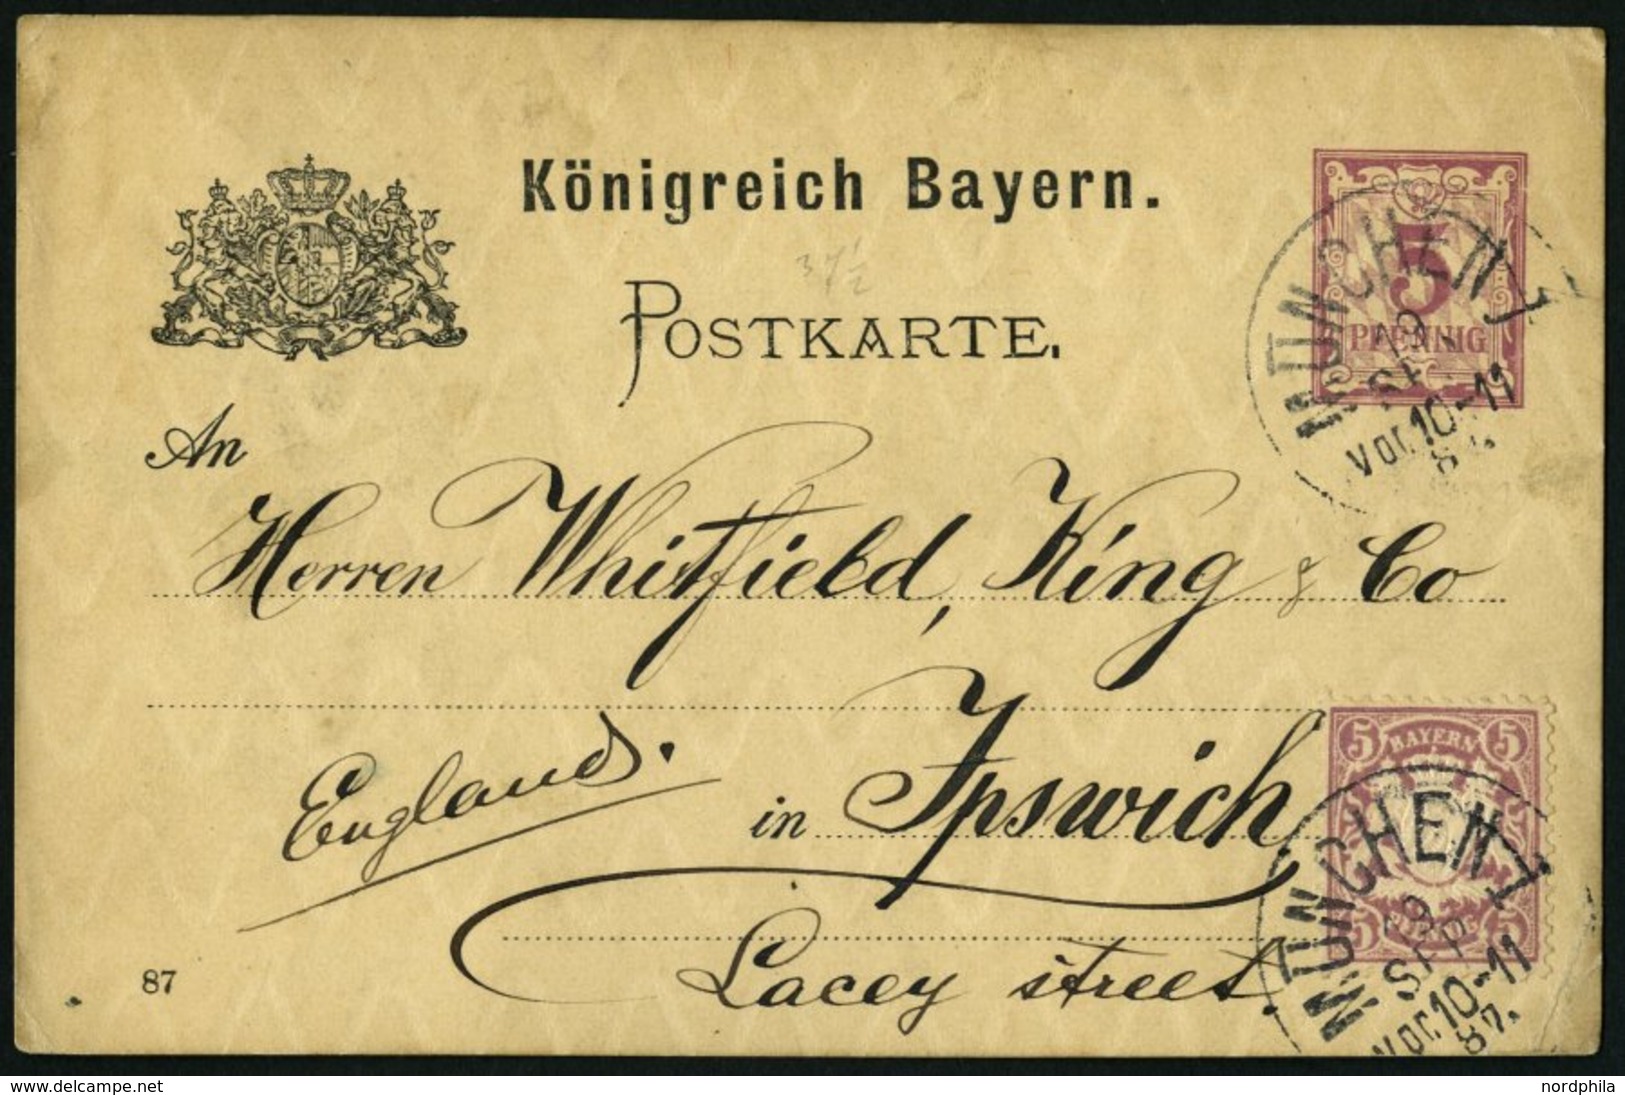 Königreich Bayern.
3 1/2
POSTKARTE.
5
PFENNIG
MÜNCHEN I
SEP
Vor. 10-11
87.
An
Herren Whitfield, King & Co
in Ipswich,
England.
Lacey street.
5 BAYERN 5
5 5
MÜNCHEN I
9
SEP
Vor. 10-11
87.
87
delcampe.net
nordphila